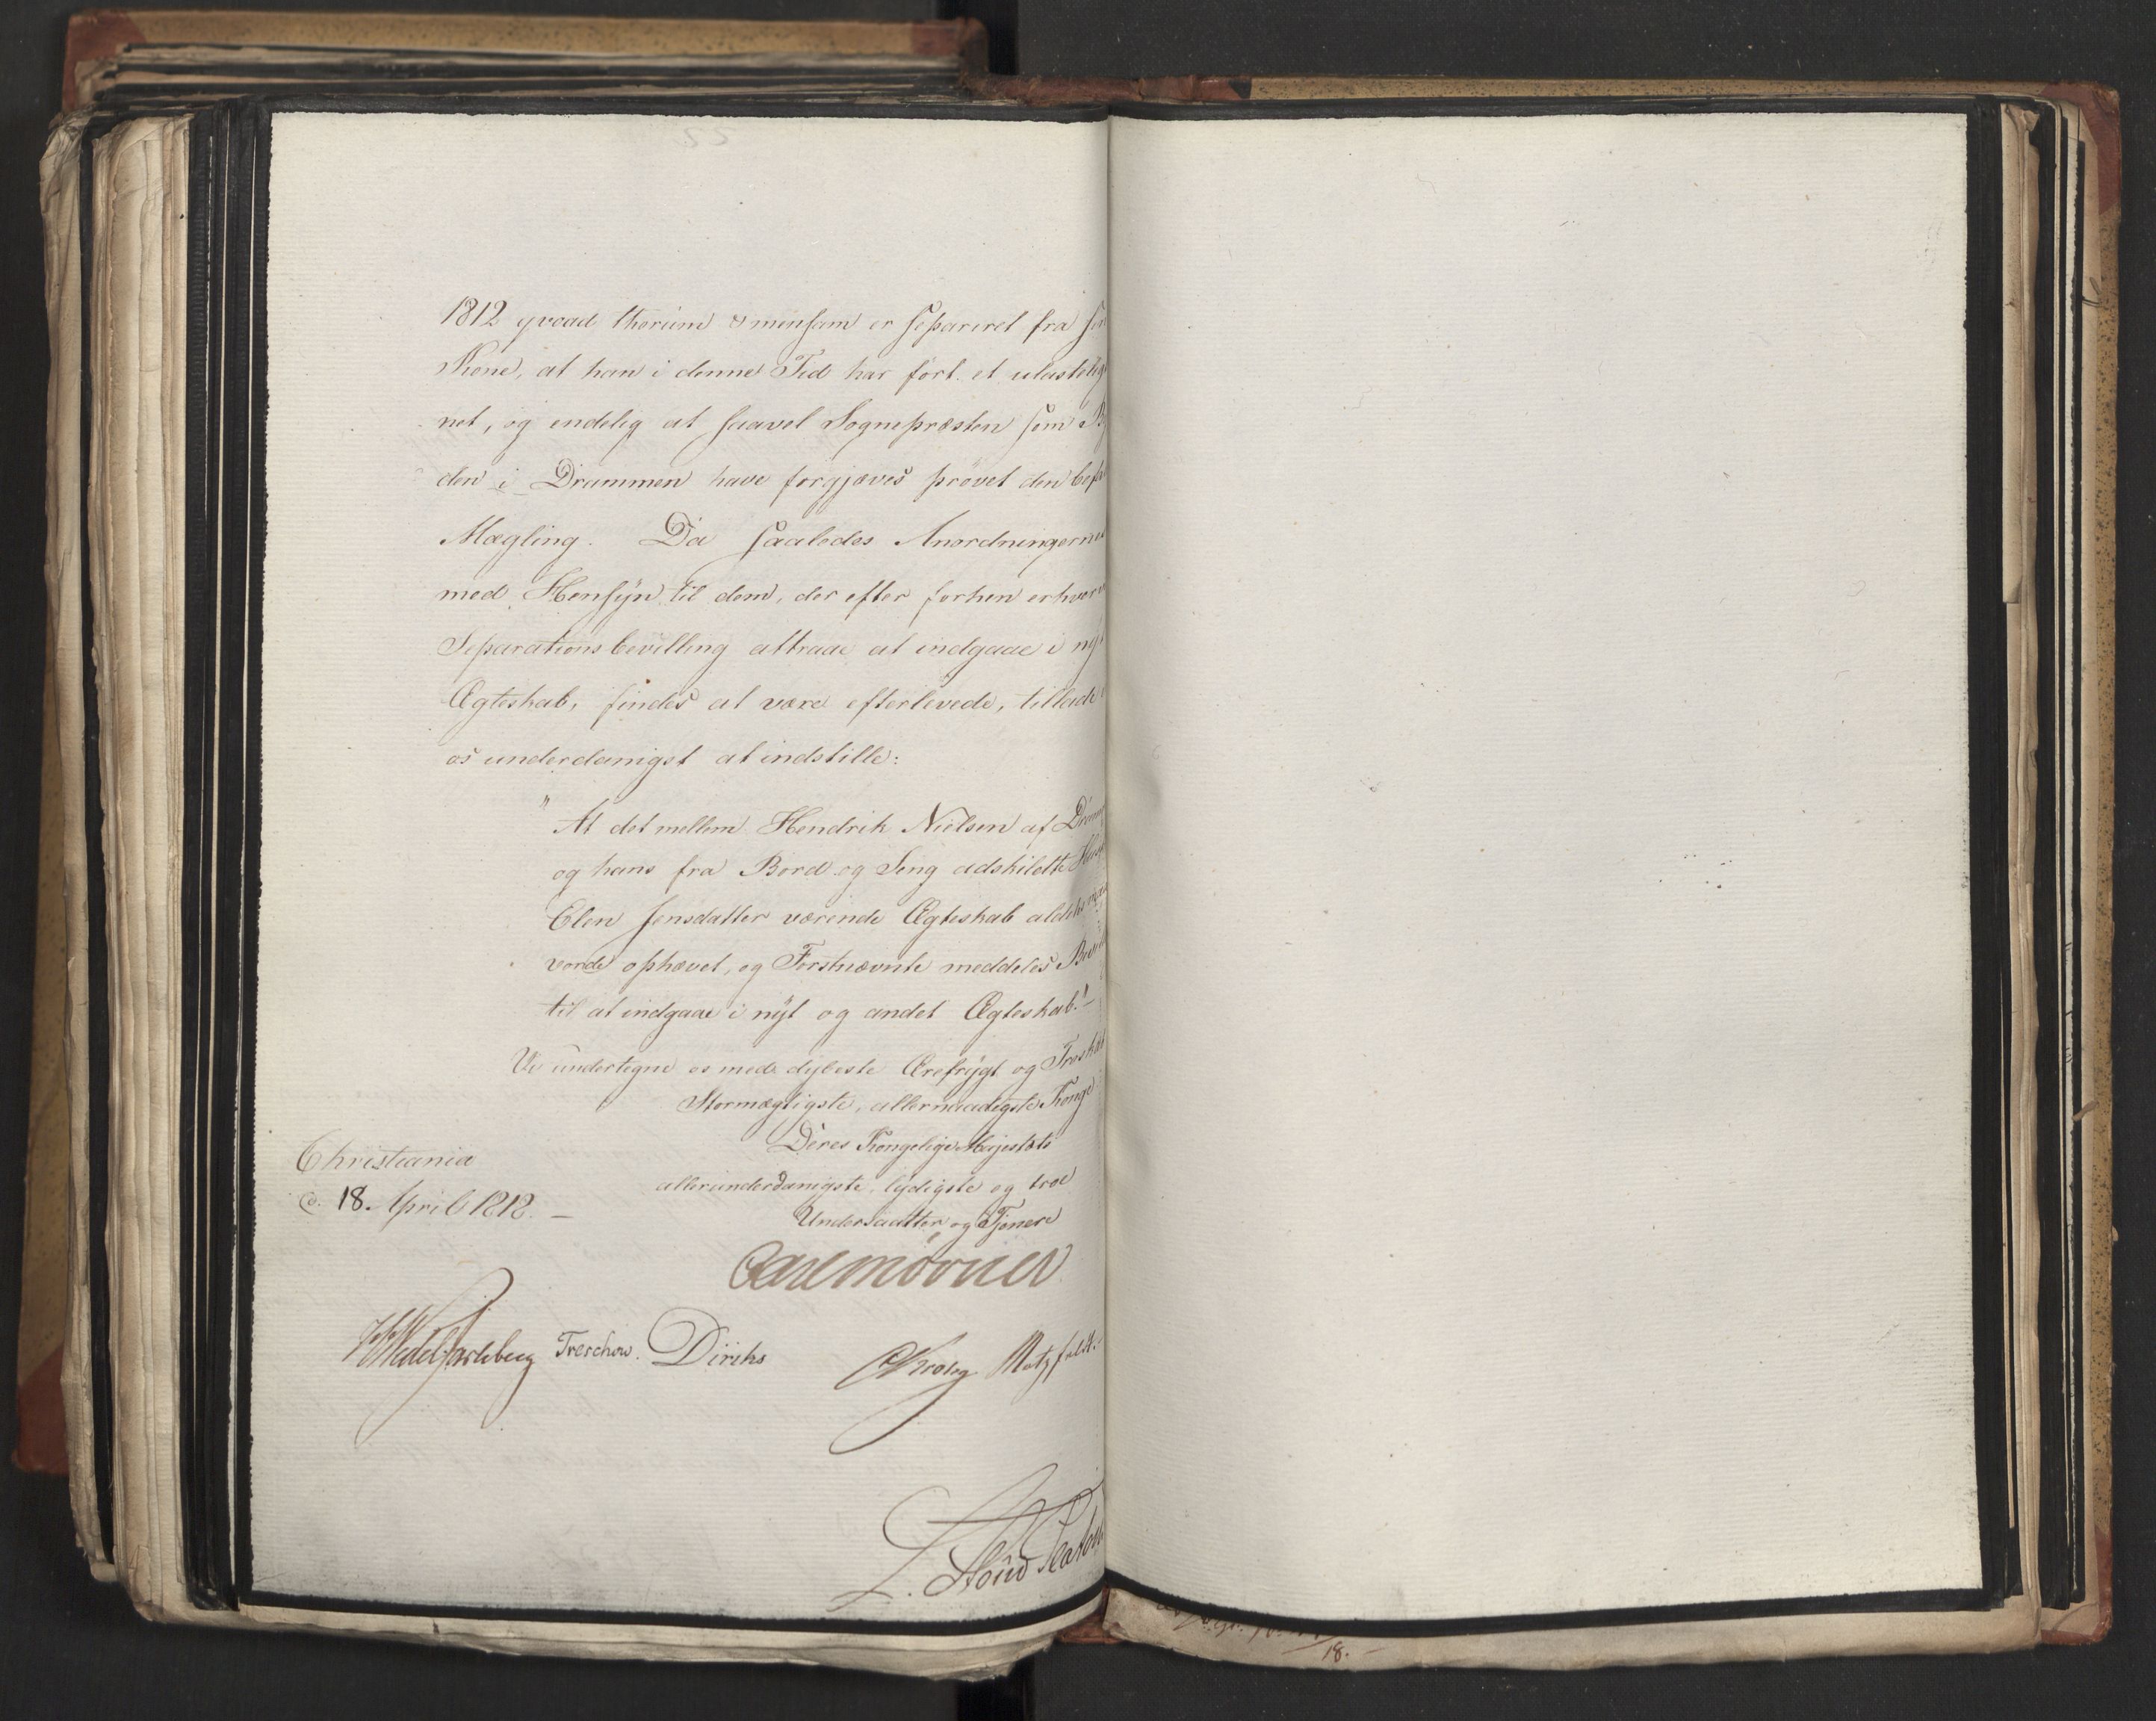 1812 qvoad thorum & mensam er separeret fra
Kone, at han i denne Tid har ført et
net, og endelig at saavel Sognepræsten som
den i Drammen have forgjæves prøvet den
Mægling. Da saaledes Anordningerne
med Hensÿn til dem, der efter forhen
Separationsbevilling attraae at indgaae i
Ægteskab, findes at være efterlevede, tillade
os underdanigst at indstille:
"At det mellem Hendrik Nielsen af
og hans fra Bord og Seng adskildte
Elen Jensdatter værende Ægteskab aldeles
vorde ophævet, og Førstnævnte meddeles
til at indgaae i nÿt og andet Ægteskab."
Vi undertegne os med dybeste Ærefrÿgt og
Stormægtigste, allernaadigste Konge
Deres Kongelige Majestæts
allerunderdanigste, lydigste og troe
Undersaatter og Tjenere
Christiania
d. 18. April 1818. —
Carl Mörner
Wedel Jarlsberg Treschow. Diriks
Krohg Motzfeldt.
18.